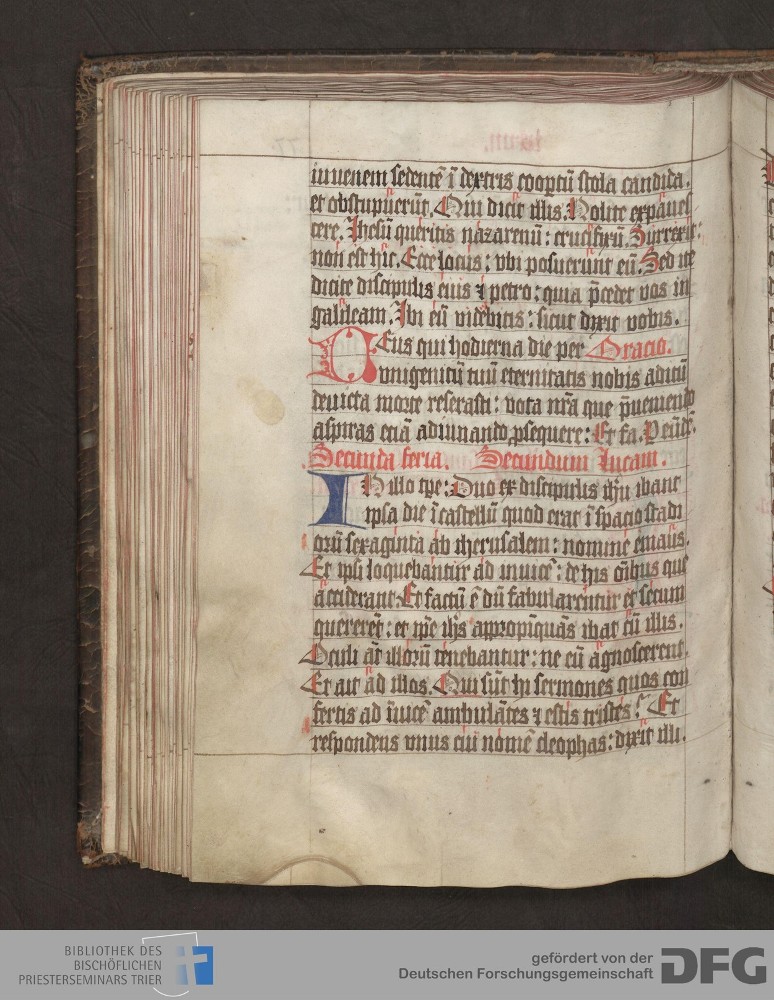 iuuenem sedentē ī dextris coopertū stola candida.
et obstupuerūt. Qui dicit illis. Nolite expaues
cere. Jhesū queritis nazarenū: crucifixū. Surrexit:
non est hic. Ecce locus: vbi posuerunt eū. Sed ite
dicite discipulis eius ⁊ petro: quia p̄cedet vos in
galileam. Ibi eū videbitis: sicut dixit vobis.
DEus qui hodierna die per Oracio.
vnigenitū tuū eternitatis nobis aditū
deuicta morte reserasti: vota nr̄a que p̄ueniendo
aspiras eciā adiuuando ꝓsequere: Et fa. P eūdē.
Secunda feria. Secundum lucam.
IN illo tp̄e: Duo ex discipulis ih̄u ibant
ipsa die ī castellū quod erat ī spacio stadi
orū sexaginta ab iherusalem: nomine emaus.
Et ipsi loquebantur ad inuicē: de his oībus que
acciderant. Et factū ē dū fabularentur et secum
quererēt: et ip̄e ih̄s appropīquās ibat cū illis.
Oculi āt illorū tenebantur: ne eū agnoscerent.
Et ait ad illos. Qui sūt hi sermones quos con
fertis ad īuicē ambulātes ⁊ estis tristes? Et
respondens vnus cui nomē cleophas: dixit illi.
BIBLIOTHEK DES
BISCHÖFLICHEN
PRIESTERSEMINARS TRIER
gefördert von der
Deutschen Forschungsgemeinschaft
DFG